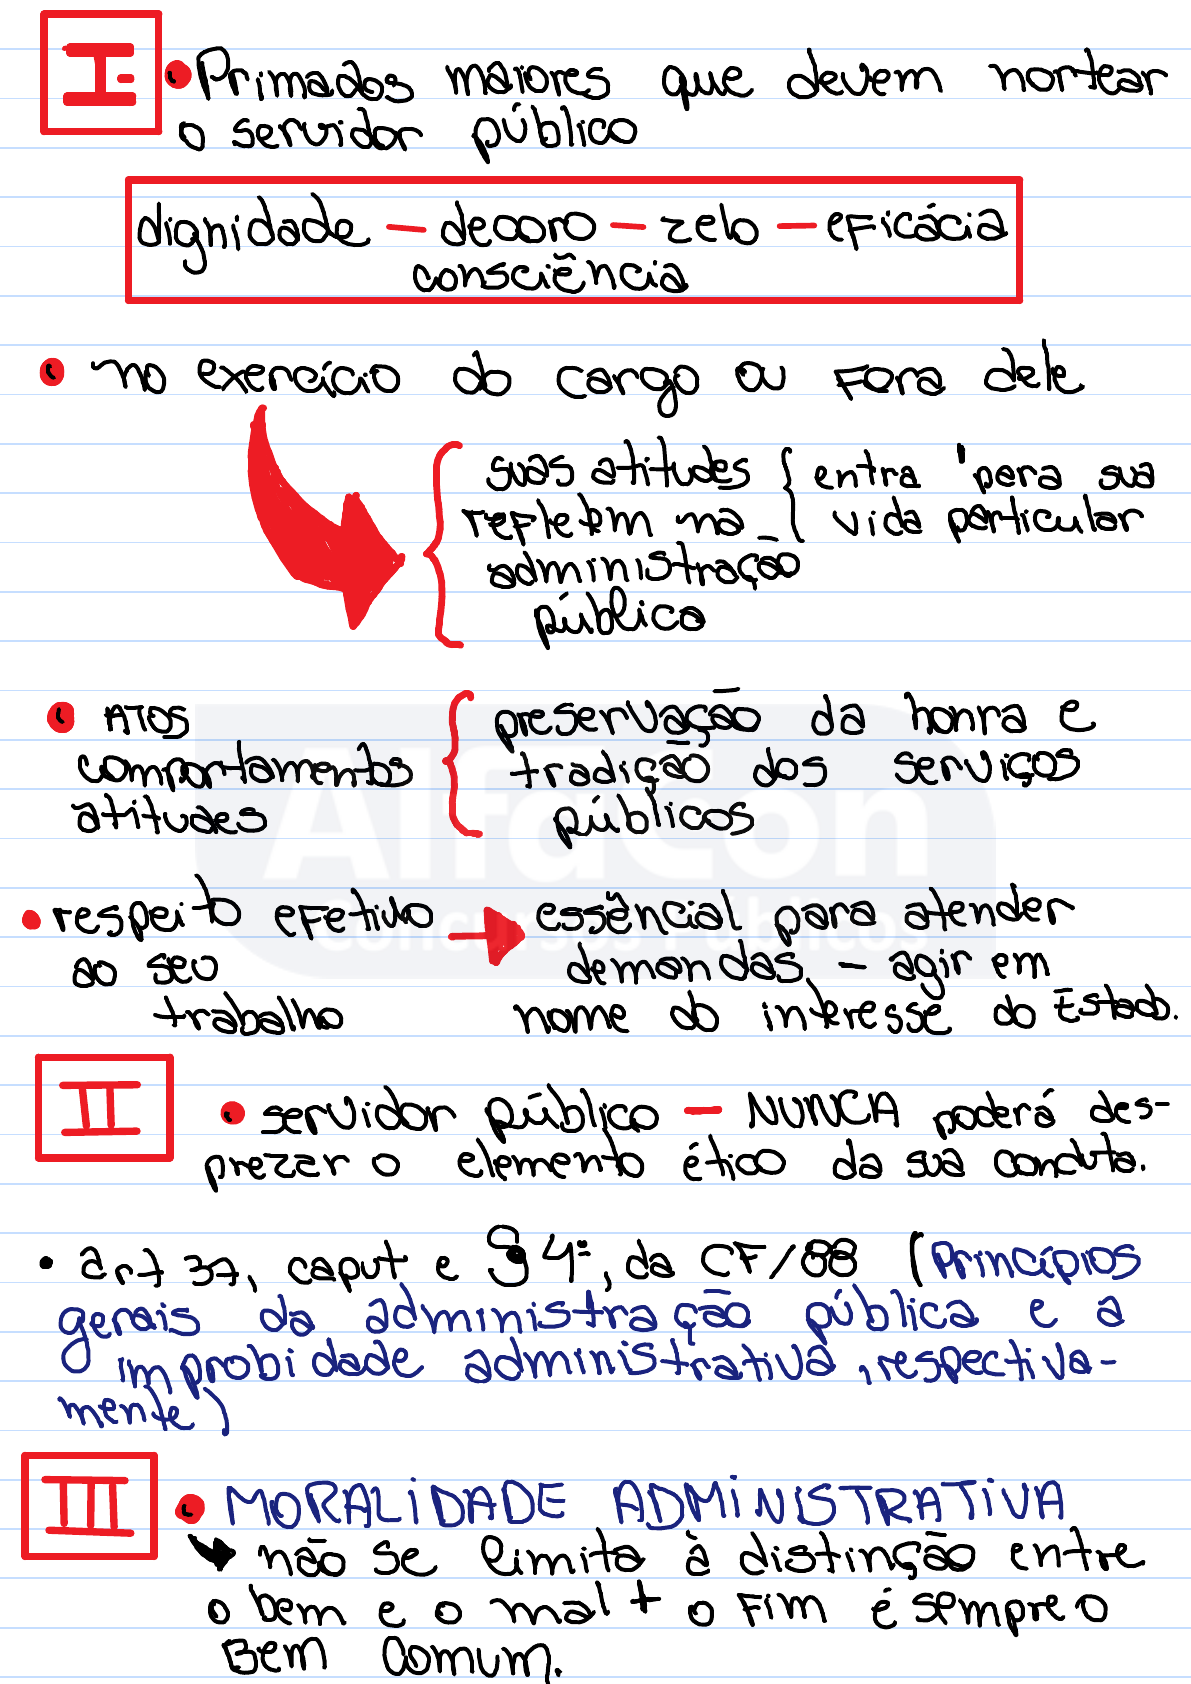 I
• Primados maiores que devem nortear
o servidor público
dignidade — decoro — zelo — eficácia
consciência
• no exercício do cargo ou fora dele
suas atitudes { entra para sua
refletem na vida particular
administração
pública
• ATOS
comportamentos
atitudes
preservação da honra e
tradição dos serviços
públicos
AlfaCon
Concursos Públicos
• respeito efetivo
ao seu
trabalho
essêncial para atender
demandas – agir em
nome do interesse do Estado.
II
• servidor público — NUNCA poderá des-
prezar o elemento ético da sua conduta.
• art 37, caput e § 4º, da CF/88 (Princípios
gerais da administração pública e a
improbidade administrativa, respectiva-
mente)
III
• MORALIDADE ADMINISTRATIVA
não se limita à distinção entre
o bem e o mal + o fim é sempre o
Bem Comum.